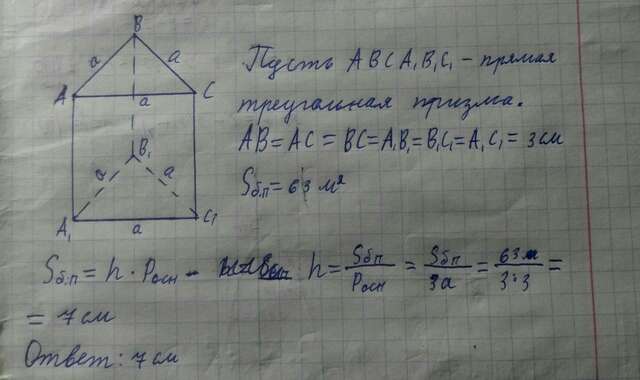 B
a a
A a C
B₁
a a
A₁ a C₁
Пусть ABCA₁B₁C₁ - прямая
треугольная призма.
AB = AC = BC = A₁B₁ = B₁C₁ = A₁C₁ = 3 см
Sб.п = 63 м²
Sб.п = h · Pосн - h = Sб.п / Pосн = Sб.п / 3a = 63 / 3·3 =
= 7 см
Ответ: 7 см